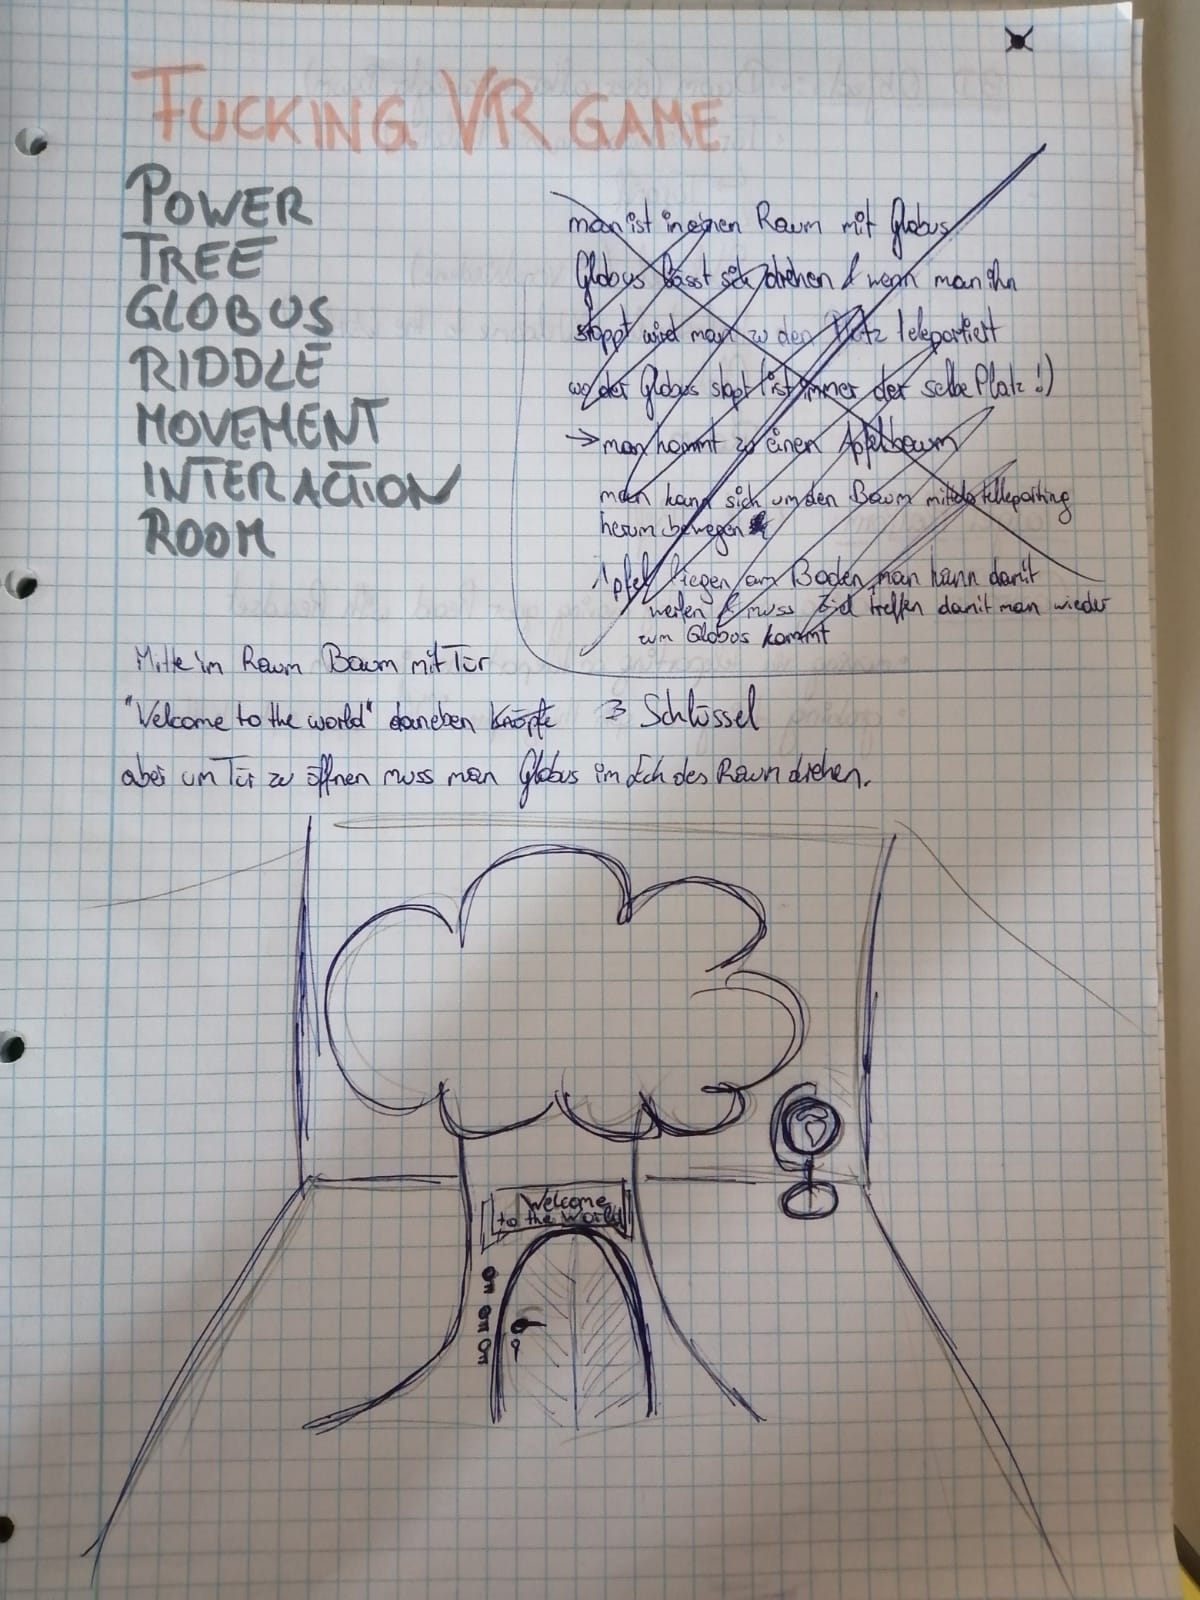 FUCKING VR GAME
POWER
TREE
GLOBUS
RIDDLE
MOVEMENT
INTERACTION
ROOM
man ist in einen Raum mit Globus
Globus lässt sich drehen & wenn man ihn
stoppt wird man zu den Platz teleportiert
wo der Globus stopt (ist immer der selbe Platz!)
→ man kommt zu einen Apfelbaum
man kann sich um den Baum mittels telleporting
herum bewegen
Äpfel liegen am Boden man kann damit
werfen & muss Ziel treffen damit man wieder
zum Globus kommt
Mitte im Raum Baum mit Tür
"Welcome to the world" daneben Knöpfe 3 Schlüssel
aber um Tür zu öffnen muss man Globus im Eck des Raum drehen.
Welcome
to the World